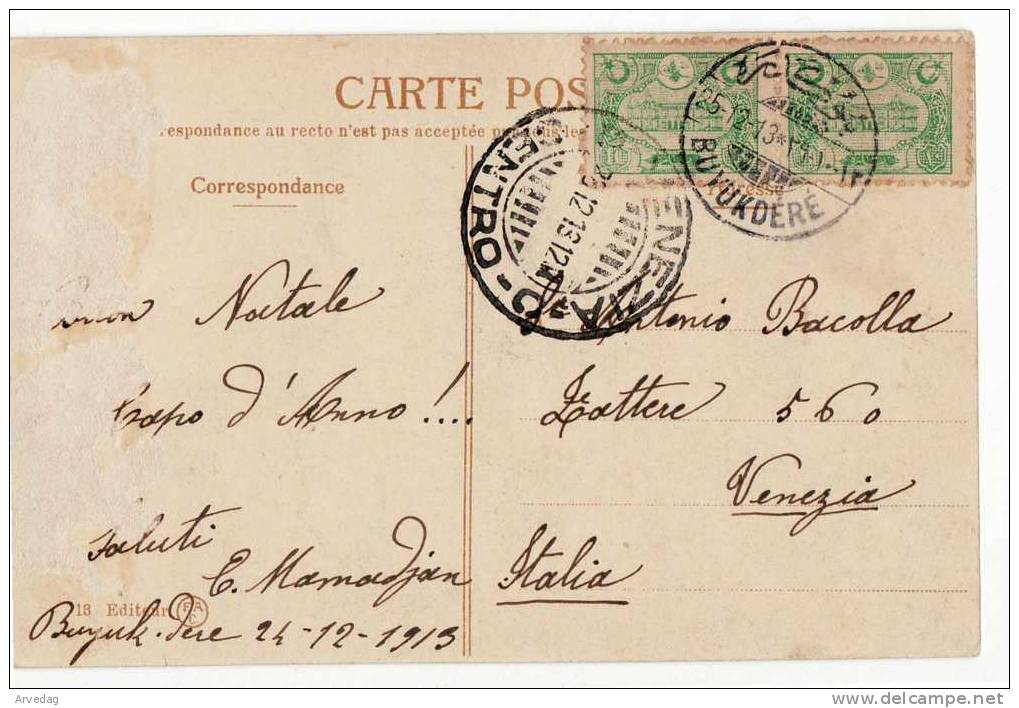 CARTE POS
respondance au recto n'est pas acceptée
Correspondance
Adresse
BUYUKDÉRÉ
VENEZIA
CENTRO
Natale
Capo d'Anno !...
Saluti
E. Mamadjan
Buyuk-Dere 24-12-1913
13 Editeur
Antonio Bacolla
Zattere 560
Venezia
Italia
Arvedag
http://www.delcampe.net